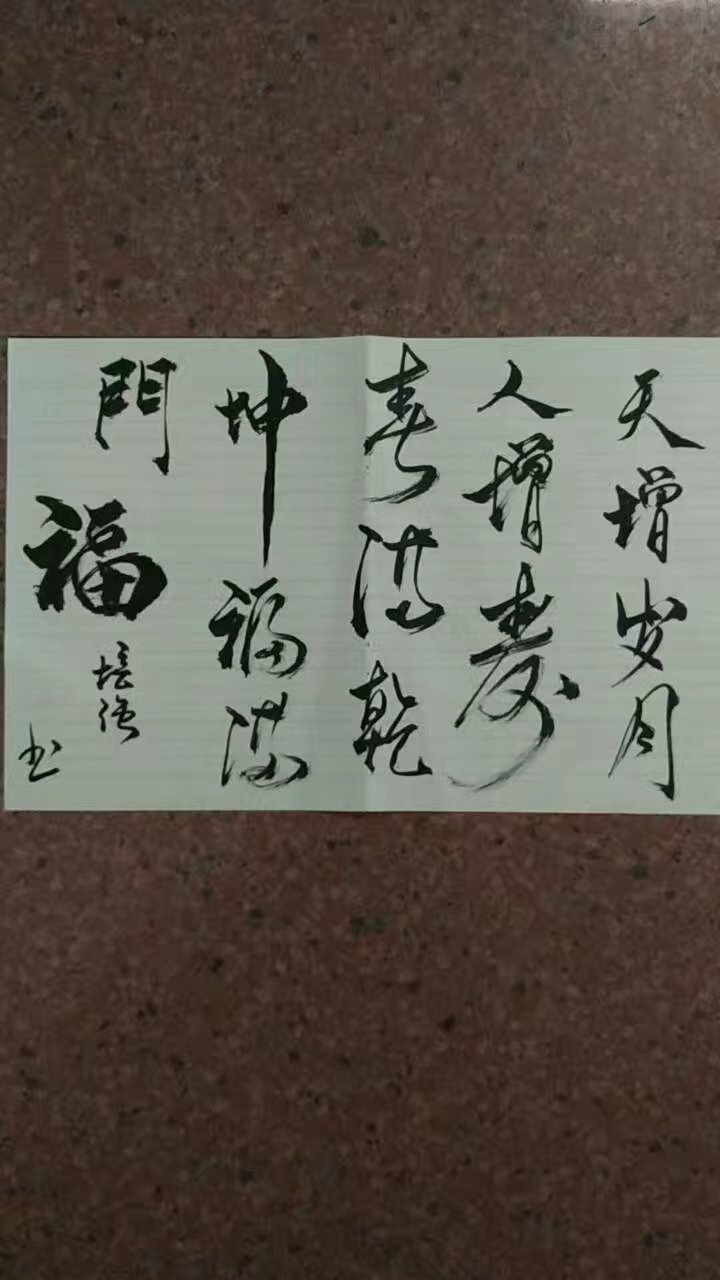 天增岁月
人增寿
春满乾
坤福满
門福
培强
书